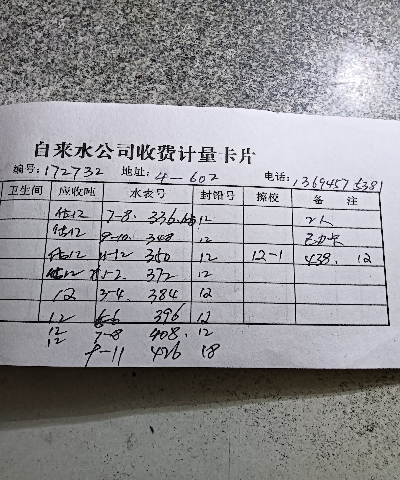 自来水公司收费计量卡片
编号:172732 地址:4-602 电话:13694575381
卫生间 应收吨 水表号 封铅号 擦校 备 注
估12 7-8 336 12 2人
估12 9-10 348 12
估12 11-12 360 12 12-1 438. 12
估12 1-2 372 12
12 3-4 384 12
12 396 12
12 7-8 408. 12
12
9-11 426 18